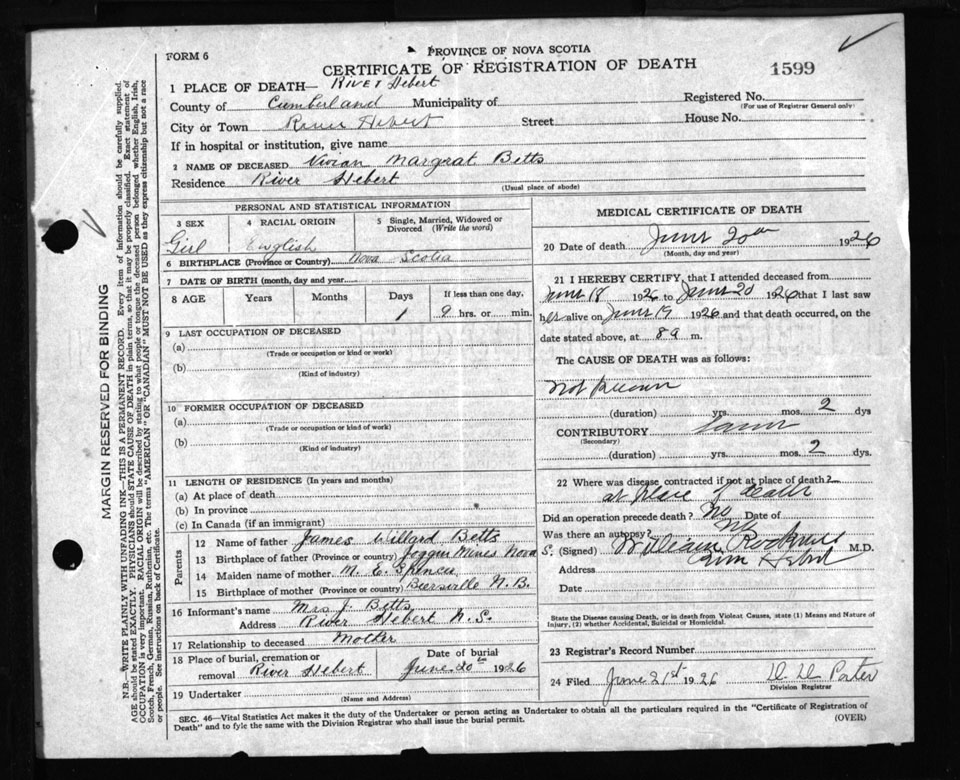 FORM 6
PROVINCE OF NOVA SCOTIA
CERTIFICATE OF REGISTRATION OF DEATH
1599
1 PLACE OF DEATH— River Hebert
Registered No.
(For use of Registrar General only)
County of Cumberland Municipality of
City or Town River Hebert Street House No.
If in hospital or institution, give name
2 NAME OF DECEASED Vivian Margrat Betts
Residence River Hebert
(Usual place of abode)
PERSONAL AND STATISTICAL INFORMATION
3 SEX 4 RACIAL ORIGIN 5 Single, Married, Widowed or Divorced (Write the word)
Girl English
6 BIRTHPLACE (Province or Country) Nova Scotia
7 DATE OF BIRTH (month, day and year)
8 AGE Years Months Days If less than one day,
1 9 hrs. or min.
9 LAST OCCUPATION OF DECEASED
(a)
(Trade or occupation or kind or work)
(b)
(Kind of industry)
10 FORMER OCCUPATION OF DECEASED
(a)
(Trade or occupation or kind of work)
(b)
(Kind of industry)
11 LENGTH OF RESIDENCE (In years and months)
(a) At place of death
(b) In province
(c) In Canada (if an immigrant)
Parents
12 Name of father James Willard Betts
13 Birthplace of father (Province or country) Joggin Mines Nova S.
14 Maiden name of mother M. E. Spence
15 Birthplace of mother (Province or country) Beersville N.B.
16 Informant's name Mrs J. Betts
Address River Hebert N.S.
17 Relationship to deceased Mother
18 Place of burial, cremation or removal River Hebert
Date of burial June 20th 1926
19 Undertaker
(Name and Address)
MEDICAL CERTIFICATE OF DEATH
20 Date of death June 20th 1926
(Month, day and year)
21 I HEREBY CERTIFY, that I attended deceased from
June 18 1926 to June 20 1926 that I last saw
her alive on June 19 1926 and that death occurred, on the
date stated above, at 8 a m.
The CAUSE OF DEATH was as follows:
Not Known
(duration) yrs. mos. 2 dys
CONTRIBUTORY Same
(Secondary)
(duration) yrs. mos. 2 dys.
22 Where was disease contracted if not at place of death?
at place of death
Did an operation precede death? No Date of
Was there an autopsy? No
(Signed) William M.D.
Address River Hebert
Date
State the Disease Causing Death, or in death from Violent Causes, state (1) Means and Nature of
Injury, (2) whether Accidental, Suicidal or Homicidal.
23 Registrar's Record Number
24 Filed June 21st 1926 Porter
Division Registrar
SEC. 46—Vital Statistics Act makes it the duty of the Undertaker or person acting as Undertaker to obtain all the particulars required in the "Certificate of Registration of
Death" and to fyle the same with the Division Registrar who shall issue the burial permit.
(OVER)
MARGIN RESERVED FOR BINDING
N.B.—WRITE PLAINLY WITH UNFADING INK—THIS IS A PERMANENT RECORD. Every item of information should be carefully supplied.
AGE should be stated EXACTLY. PHYSICIANS should STATE CAUSE OF DEATH in plain terms, so that it may be properly classified. Exact statement of
OCCUPATION is very important. RACIAL ORIGIN will be described by stating to what people or tongue the deceased person belonged whether English, Irish,
Scotch, French, German, Russian, Ruthenian, etc. The terms "AMERICAN" OR "CANADIAN" MUST NOT BE USED as they express citizenship but not a race
or people. See instructions on back of Certificate.